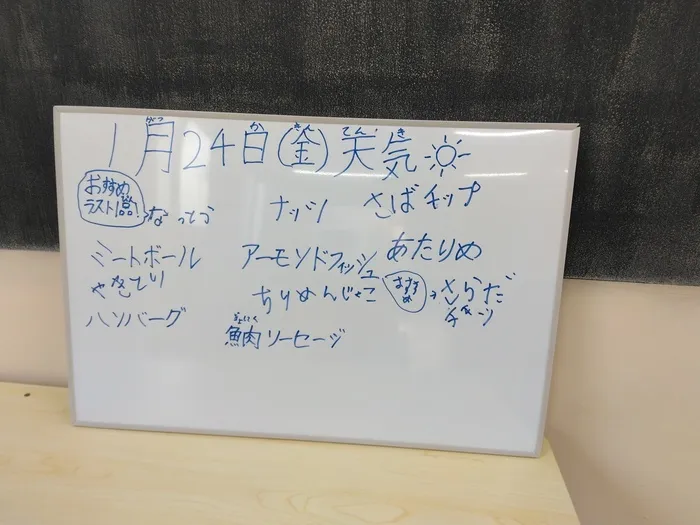 1月24日(金)天気☀
がつ か きん てん き
おすすめ
ラスト1箇!
なっとう ナッツ さばチップ
ミートボール アーモンドフィッシュ あたりめ
やきとり ちりめんじゃこ おすすめ → さらだ
チキン
ハンバーグ
ぎょにく
魚肉ソーセージ